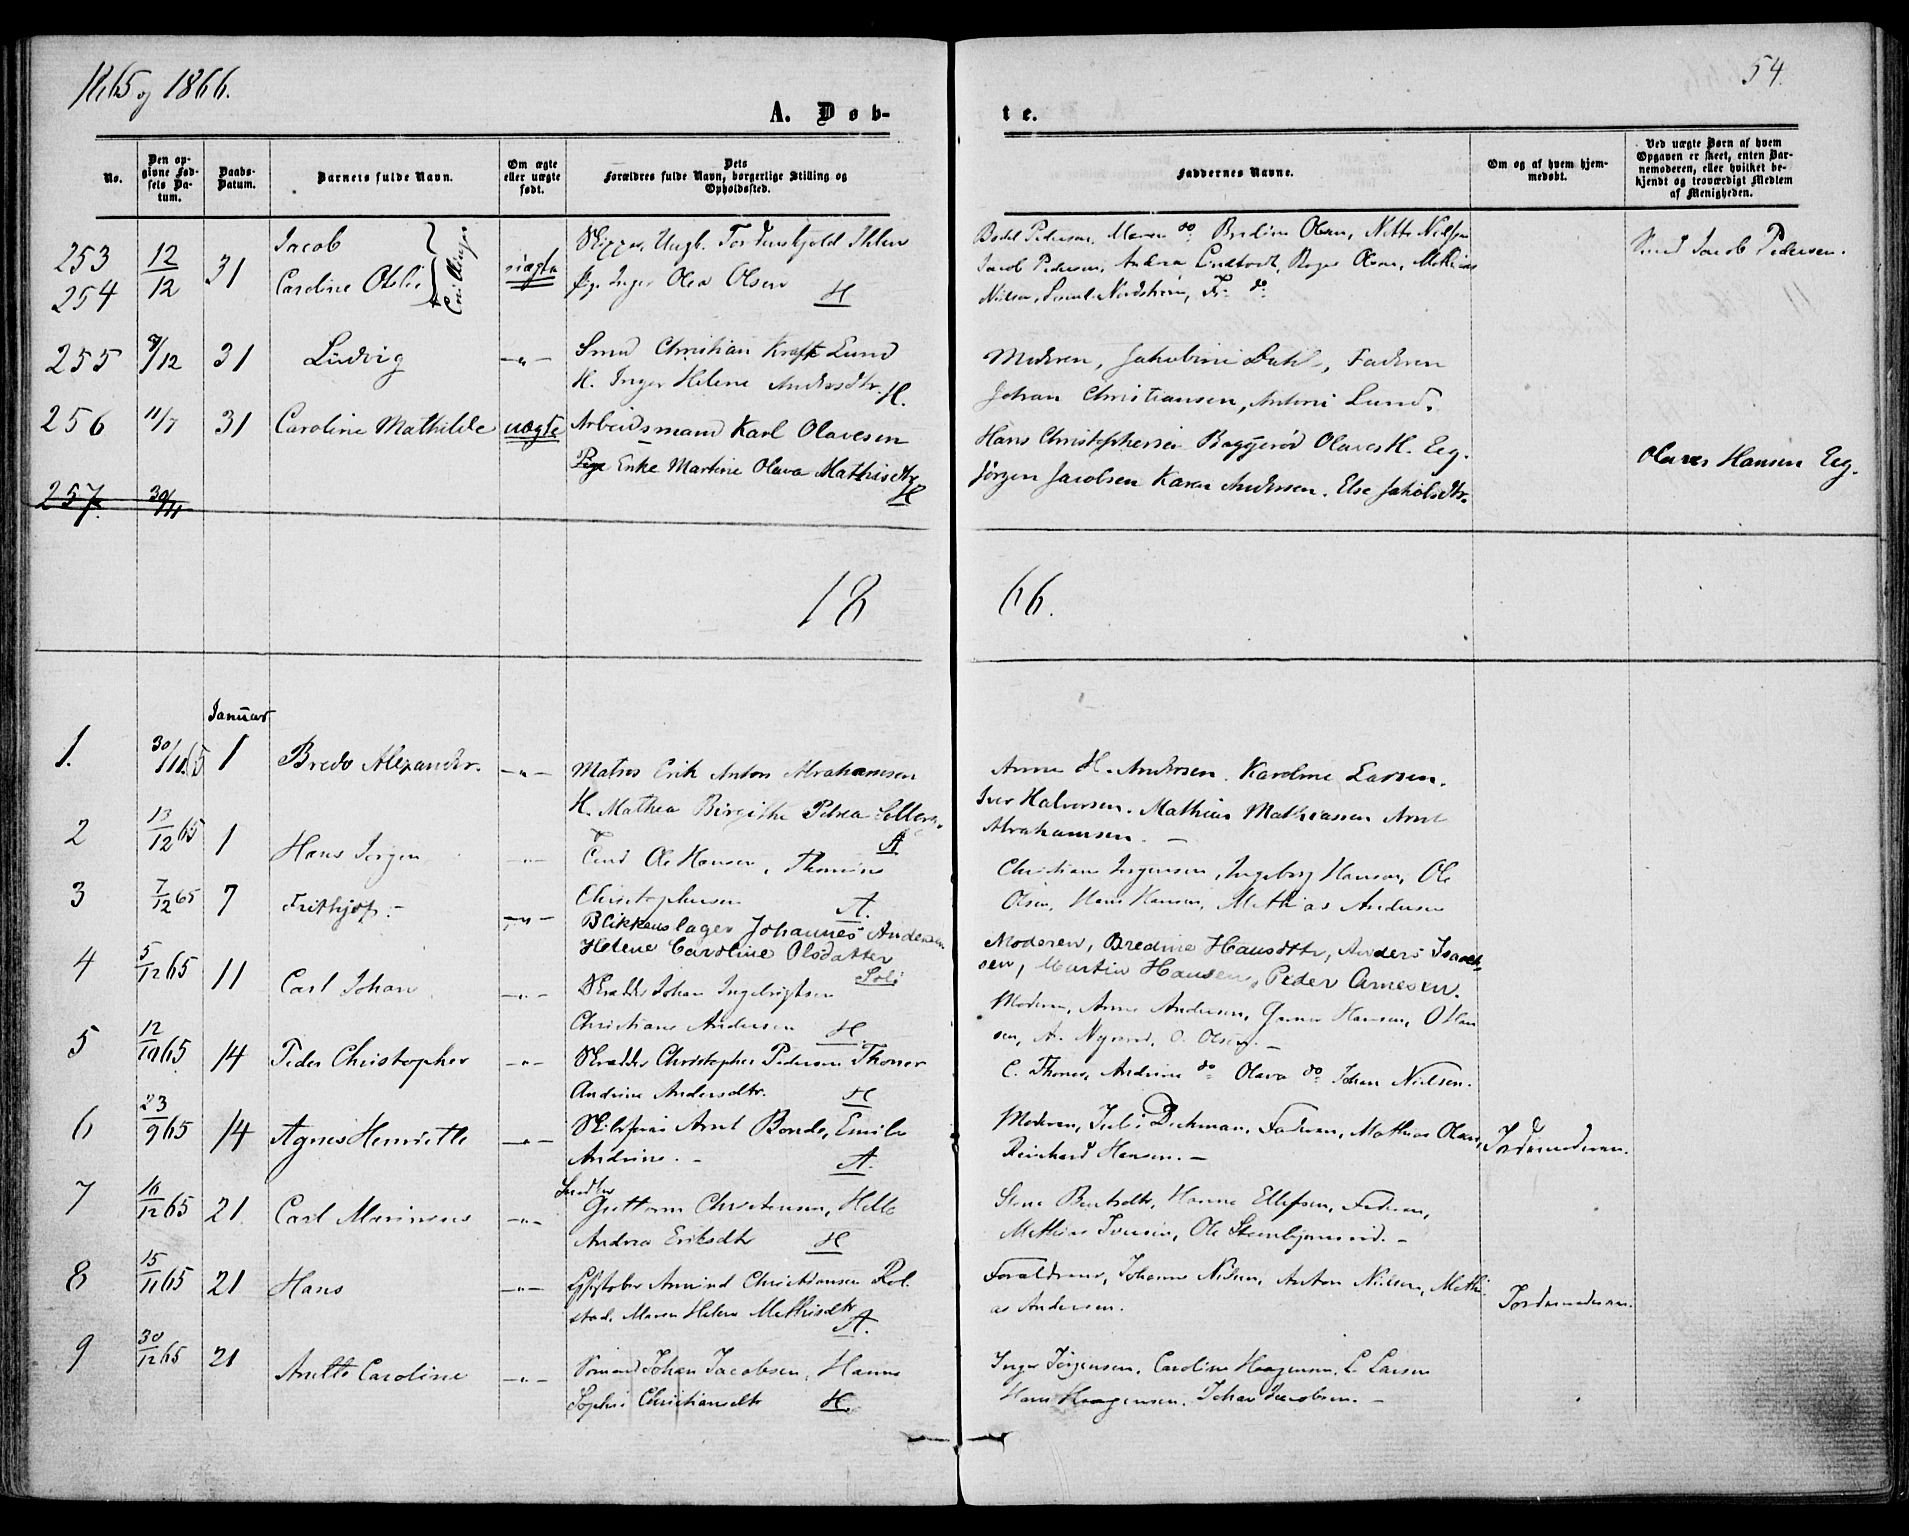 1865 og 1866.
54.
A. Døb-
te.
No.
Den op-
givne Fød-
sels Da-
tum.
Daabs-
Datum.
Barnets fulde Navn.
Om ægte
eller uægte
født.
Dets
Forældres fulde Navn, borgerlige Stilling og
Opholdssted.
Faddernes Navne.
Om og af hvem hjem-
medøbt.
Ved uægte Børn af hvem
Opgaven er skeet, enten Bar-
nemoderen, eller hvilket be-
kjendt og troværdigt Medlem
af Menigheden.
253
254
12/12
31
Jacob
Caroline
uægte
Ungk. Tordenskjold Ihlen
Pige Inger Olea Olsen H
Bodel Pedersen, Maren do Bredine Olsen, Nielsen
Jacob Pedersen, Andrea Roger Olsen, Mathias
Nilsen, Nordstrøm, Fr. do
Smed Jacob Pedersen.
255
9/12
31
Ludvig
-"-
Smed Christian Kraft Lund
H. Inger Helene Andersdtr. H.
Moderen, Jakobine Dahl, Faderen
Johan Christiansen, Antoni Lund.
256
11/7
31
Caroline Mathilde
uægte
Arbeidsmand Karl Olavesen
Pige Enke Martine Olava Mathisdtr H
Hans Christophersen Baggerød Olaves H. Eeg.
Jørgen Jacobsen Karen Andersen. Else Jakobsdtr.
Olaves Hansen Eeg.
257.
30/11
1866.
Januar
1.
30/11 65
1
Bredo Alexander.
-"-
Matros Erik Anton Abrahamsen
H. Mathea Birgithe Petrea A
Anne H. Andersen. Karoline Larsen.
Iver Halvorsen. Mathias Mathiassen Arnt
Abrahamsen. -
2
13/12 65
1
Hans Jørgen
-"-
Ole Hansen, Thomine
Christophersen A.
Christiane Jørgensen, Ingeborg Hansen, Ole
Olsen, Hans Hansen, Mathias Andersen
3
7/12 65
7
Frithjof.-
-"-
Blikkenslager Johannes Andersen
Helene Caroline Olsdatter
Moderen, Bredine Hansdtr, Anders Isaak-
sen, Martin Hansen, Peder Arnesen.
4
5/12 65
11
Carl Johan
-"-
Skrædder Johan Ingebrigtsen
Christiane Andersen H.
Moderen, Anne Andersen, Gunner Hansen, O Han
sen, A. O. Olsen. -
5
12/10 65
14
Peder Christopher
-"-
Skrædder Christopher Pedersen Thorner
Andrine Andersdtr. H
C. Thorner, Andrine do Olava do Johan Nielsen.
6
23/9 65
14
Agnes Henriette
-"-
Arnt Bonde, Emilie
Andrine. - A.
Moderen, Julie Dickman, Faderen, Mathias Olsen,
Reinhard Hansen. -
Jordemoderen.
7
16/12 65
21.
Carl Marinius
-"-
Guttorm Christensen, Helle
Andrea Eriksdtr H
Bentsdtr, Hanna Ellefsen, Faderen,
Mathias Iversen, Ole -
8
15/11 65
21
Hans
-"-
Amund Christiansen Rol
stad. Maren Helene Mathisdtr A.
Forældrene, Johanne Nilsen, Anton Nilsen, Mathi
as Andersen.
Jordemoderen.
9
30/12 65
21
Anette Caroline
-"-
Sømand Johan Jacobsen, Hanna
Sophie Christiansdtr H.
Inger Jørgensen. Caroline Haagensen, L Larsen
Hans Haagensen. Johan Jacobsen. -